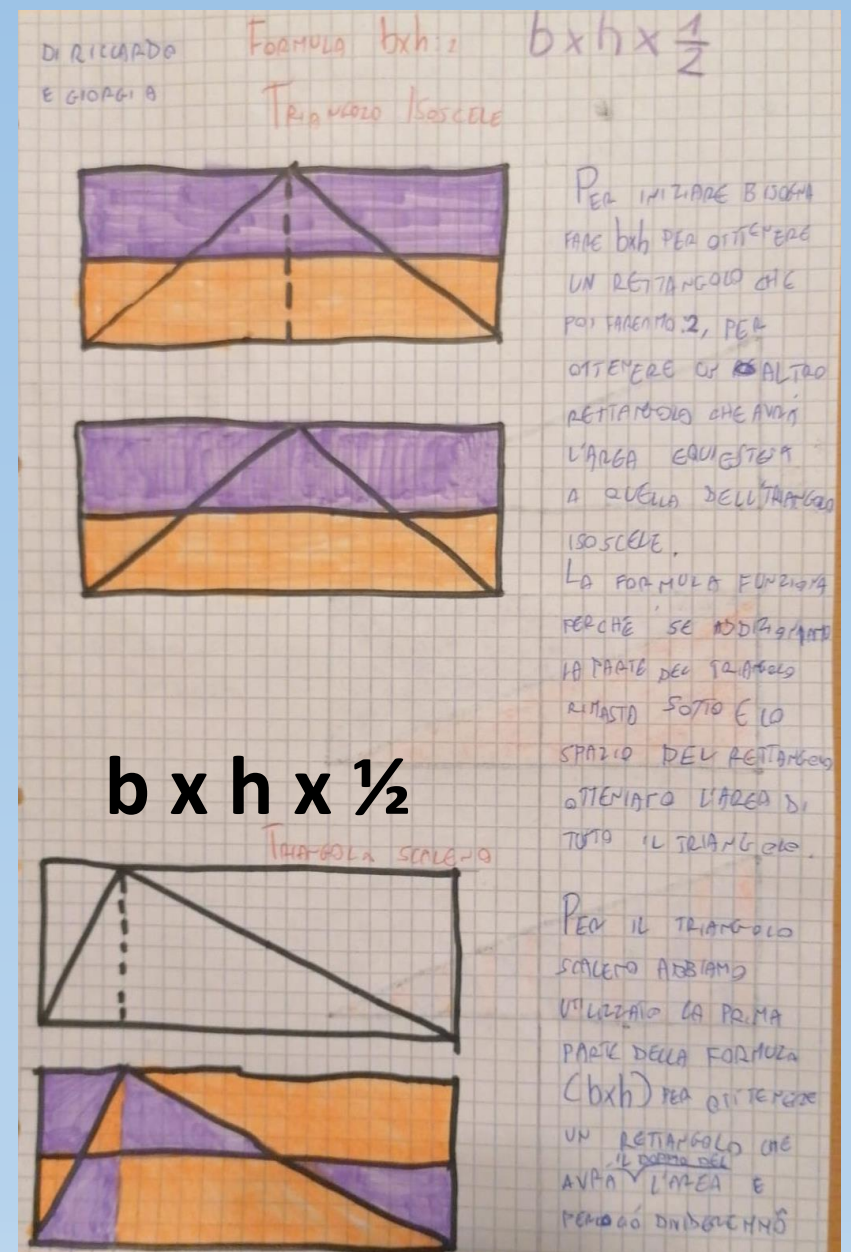 DI RICCARDO
E GIORGIA
FORMULA bxh:2
b x h x 1/2
TRIANGOLO ISOSCELE
PER INIZIARE BISOGNA
FARE bxh PER OTTENERE
UN RETTANGOLO CHE
POI FAREMO :2, PER
OTTENERE UN ALTRO
RETTANGOLO CHE AVRÀ
L'AREA EQUIESTESA
A QUELLA DELL'TRIANGOLO
ISOSCELE.
LA FORMULA FUNZIONA
PERCHÈ SE ADDIZIONIAMO
LA PARTE DEL TRIANGOLO
RIMASTO SOTTO E LO
SPAZIO DEL RETTANGOLO
OTTENIAMO L'AREA DI
TUTTO IL TRIANGOLO.
b x h x ½
TRIANGOLO SCALENO
PER IL TRIANGOLO
SCALENO ABBIAMO
UTILIZZATO LA PRIMA
PARTE DELLA FORMULA
(bxh) PER OTTENERE
UN RETTANGOLO CHE
AVRÀ IL DOPPIO DEL L'AREA E